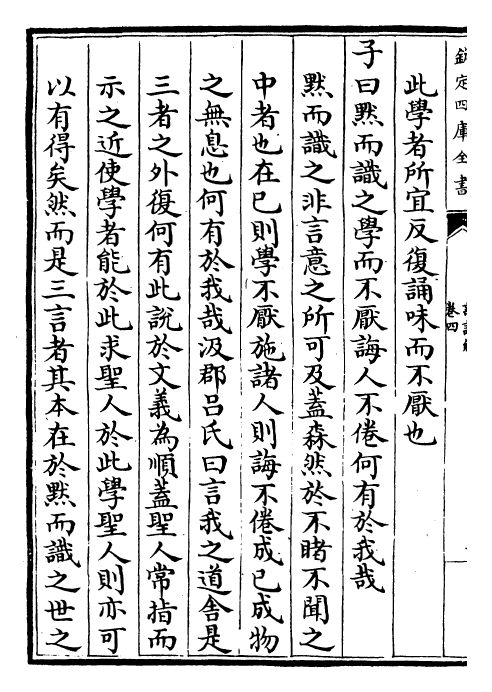 欽定四庫全書
卷四
此學者所宜反復誦味而不厭也
子曰黙而識之學而不厭誨人不倦何有於我哉
黙而識之非言意之所可及蓋森然於不睹不聞之
中者也在已則學不厭施諸人則誨不倦成已成物
之無息也何有於我哉汲郡吕氏曰言我之道舎是
三者之外復何有此説於文義為順蓋聖人常指而
示之近使學者能於此求聖人於此學聖人則亦可
以有得矣然而是三言者其本在於黙而識之世之